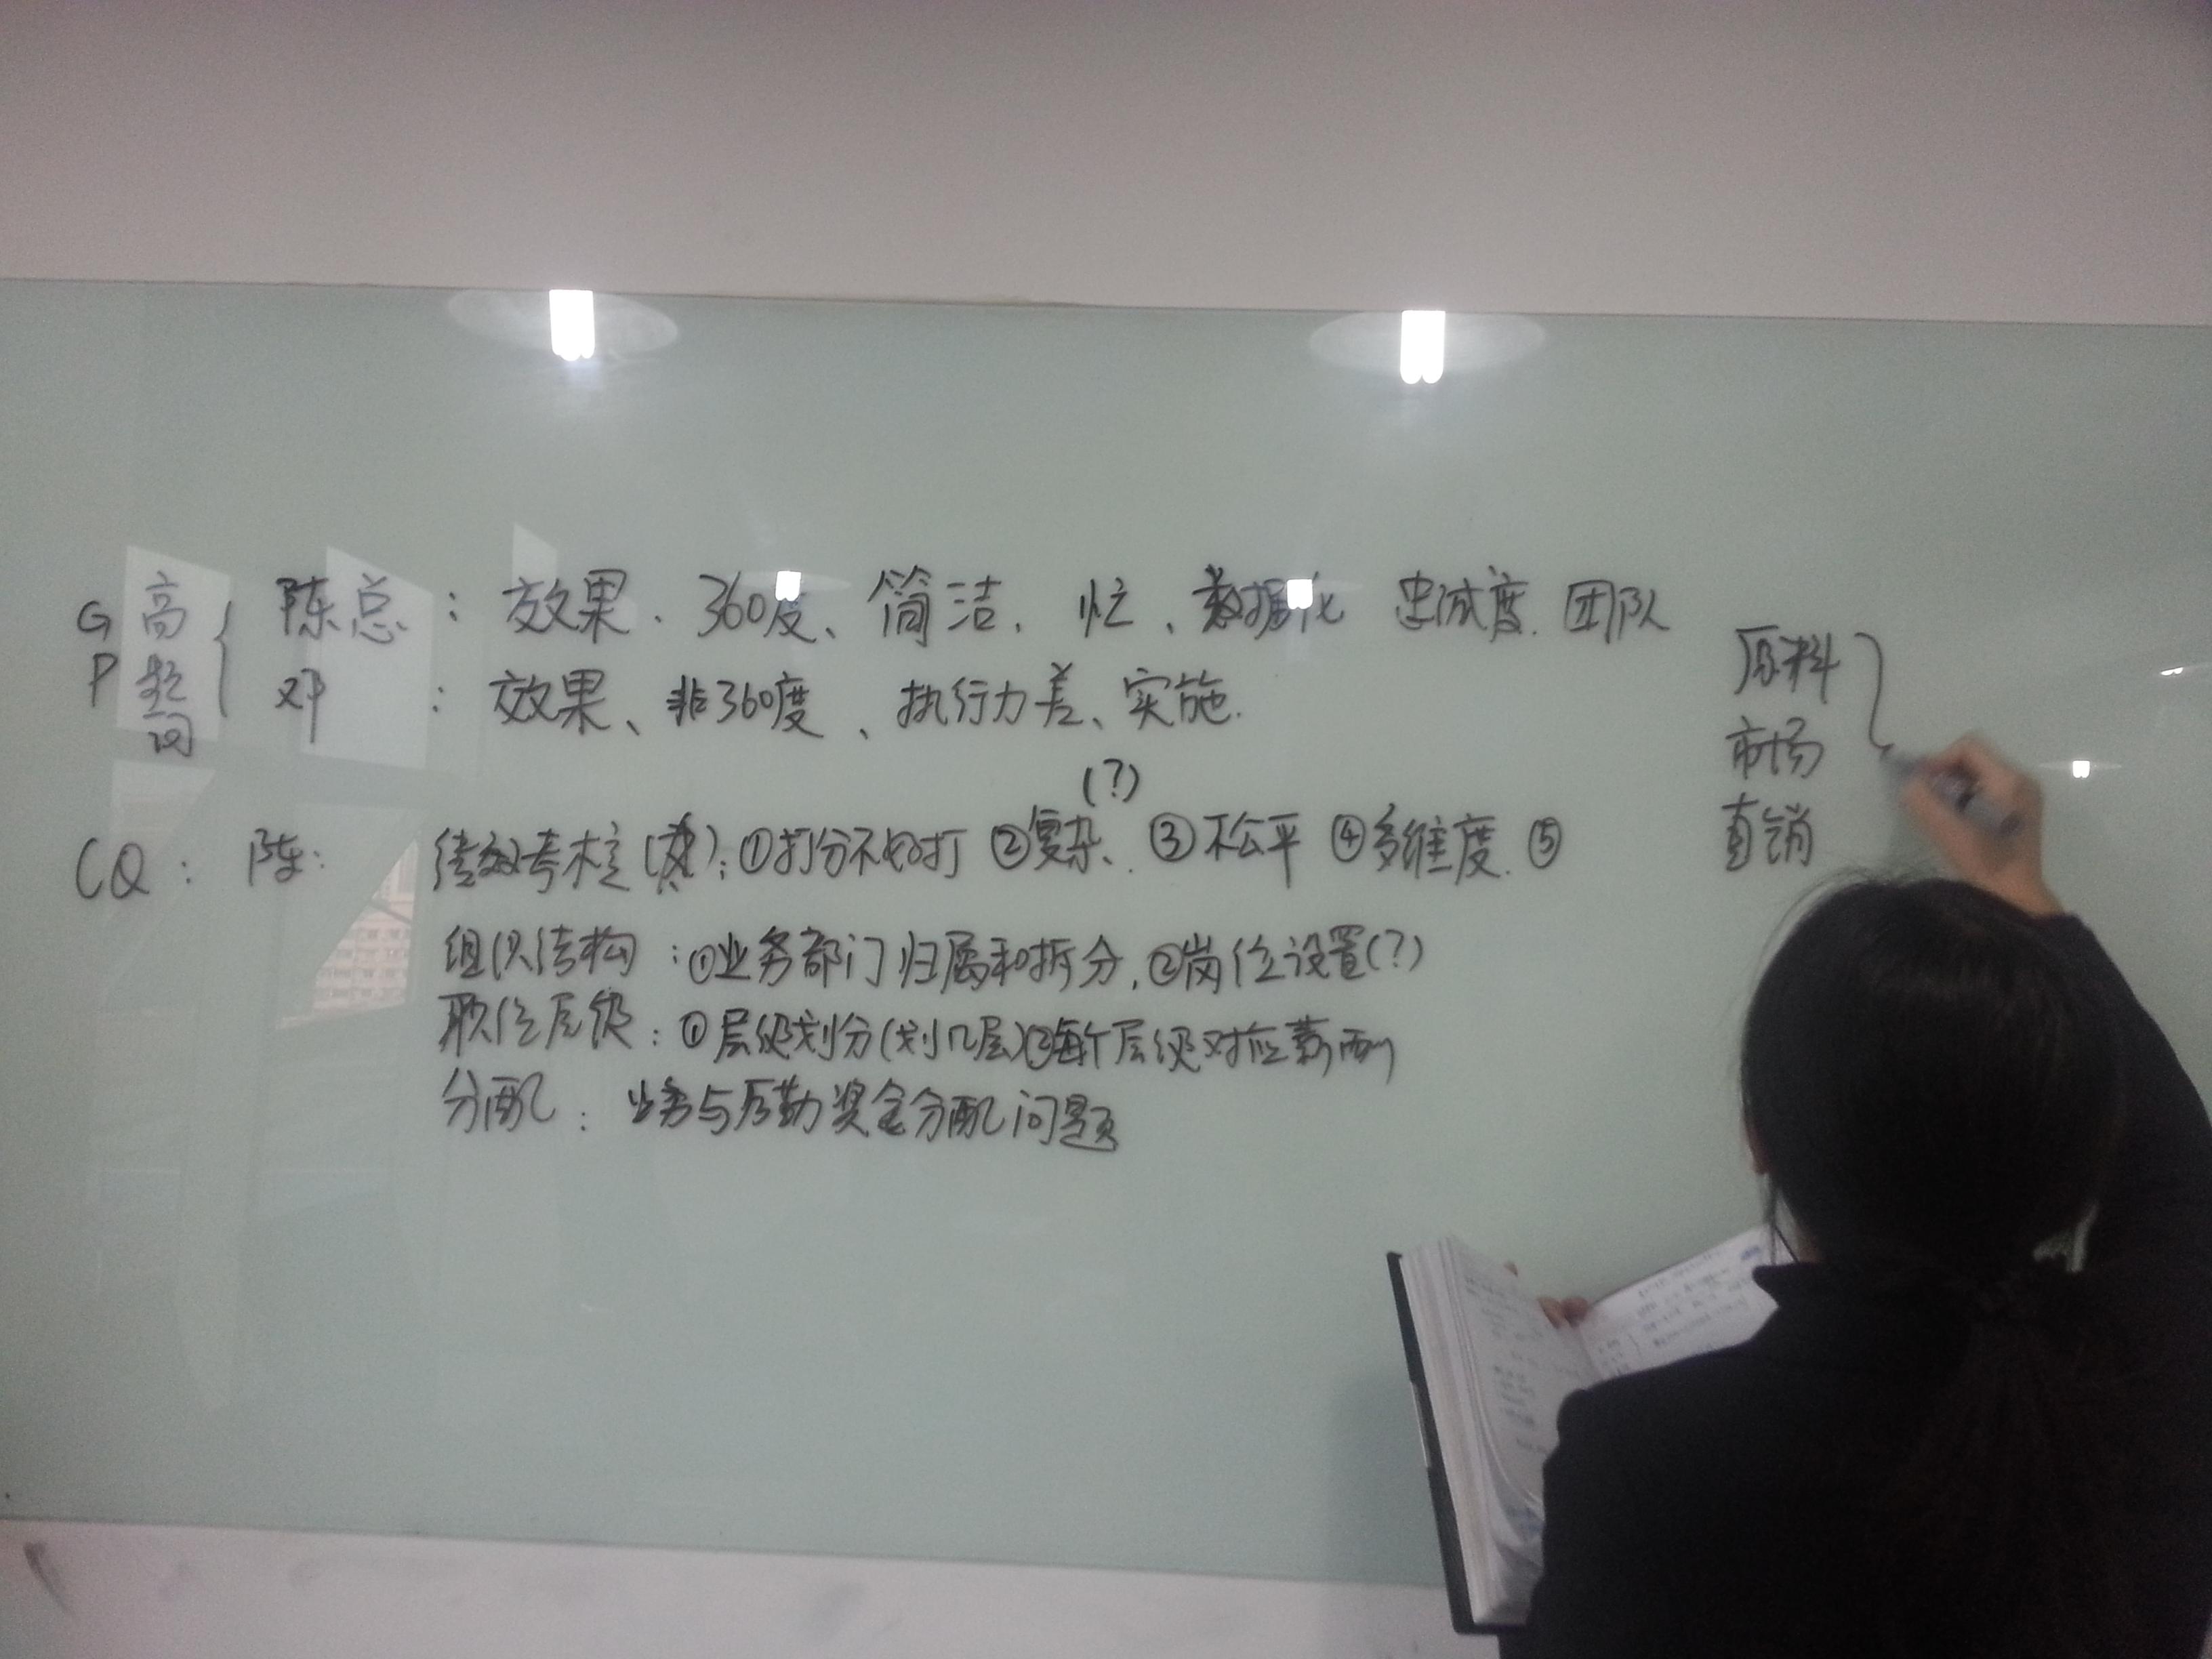 GP 高 { 陈总：效果、360度、简洁、忙、数据化 忠诚度、团队
邓：效果、非360度、执行力差、实施.
(?)
CQ：陈：绩效考核( )：①打分不好打 ②复杂、③不公平 ④多维度、⑤
组织结构：①业务部门归属和拆分，②岗位设置(?)
职位层级：①层级划分(划几层)②每个层级对应薪酬
分配：业务与后勤奖金分配问题
原料
市场
直销